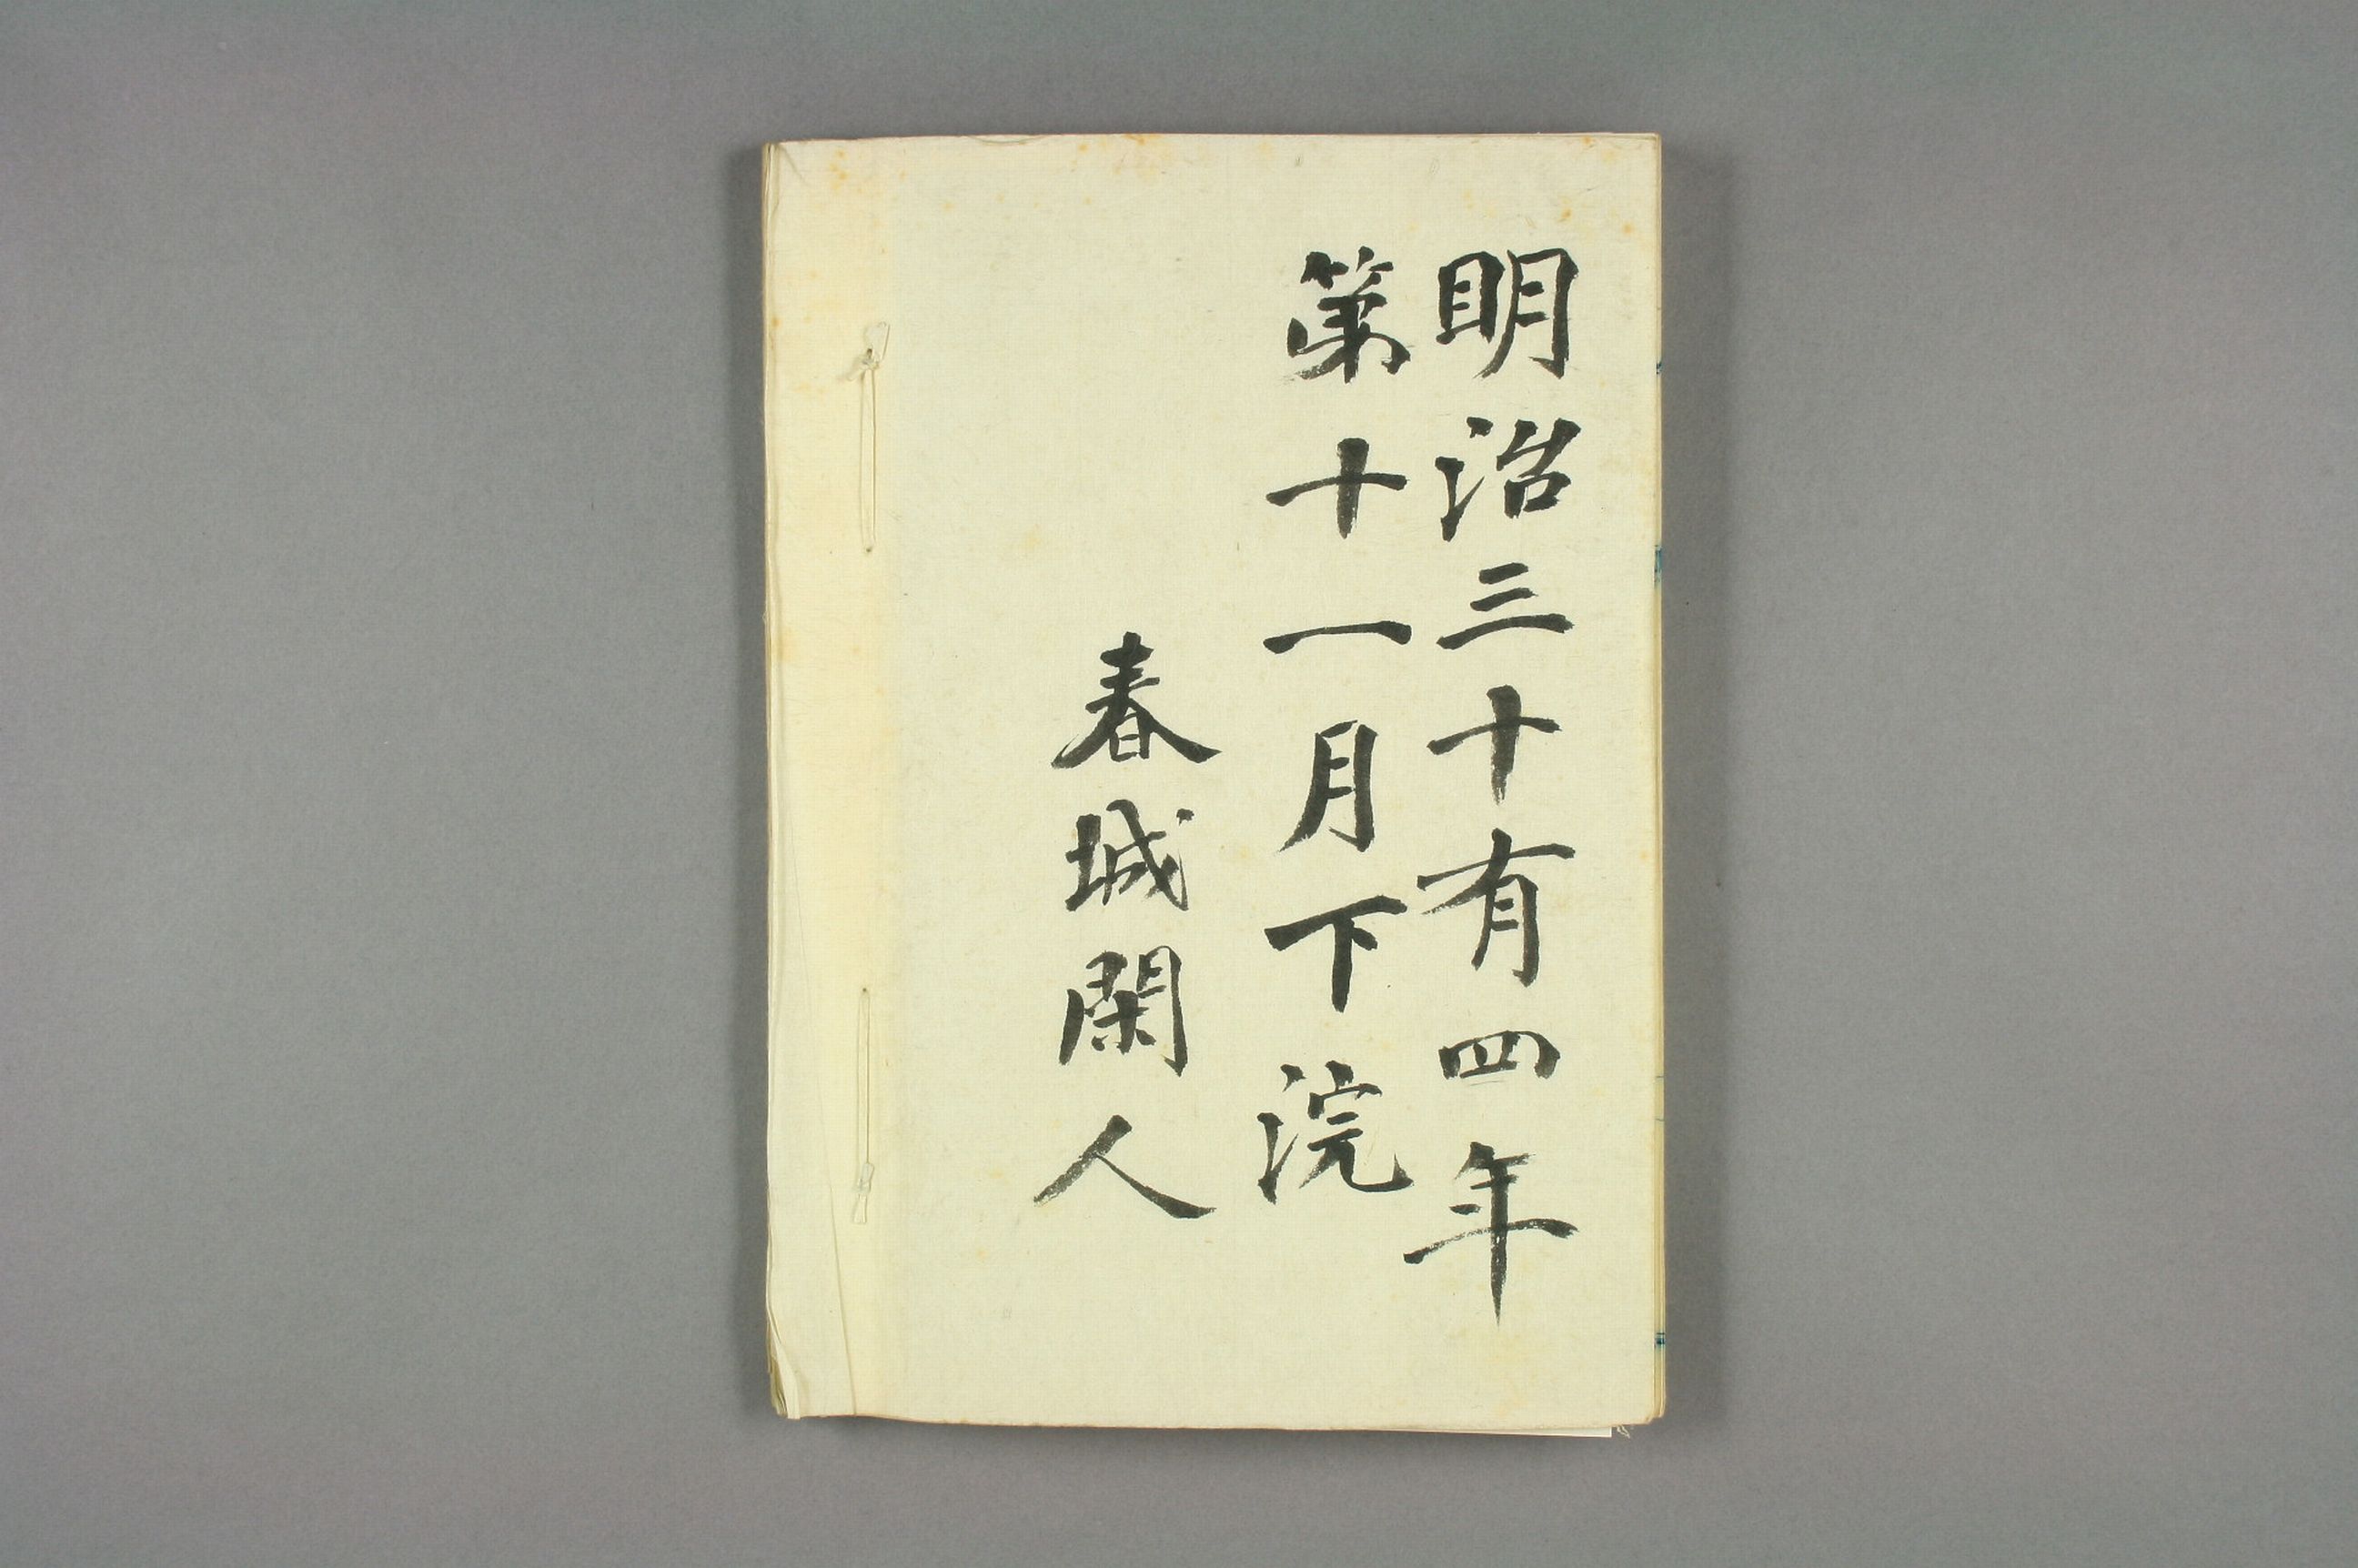 明治三十有四年
第十一月下浣
春城閑人